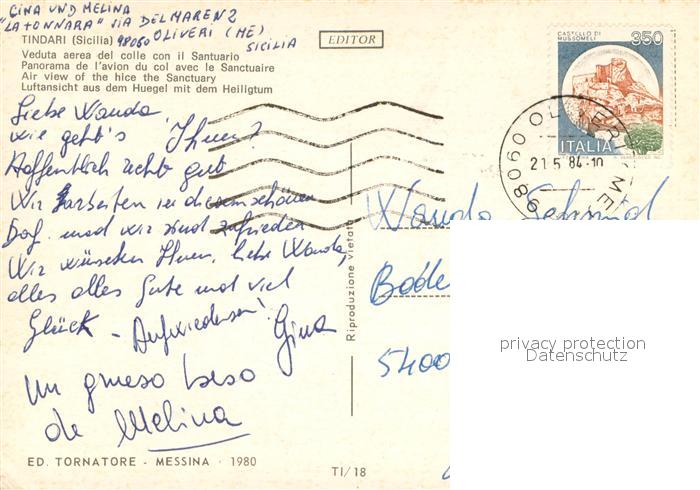 GINA UND MELINA
"LA TONNARA" VIA DEL MAREN 2
98060 OLIVERI (ME)
SICILIA
TINDARI (Sicilia)
Veduta aerea del colle con il Santuario
Panorama de l'avion du col avec le Sanctuaire
Air view of the hice the Sanctuary
Luftansicht aus dem Huegel mit dem Heiligtum
EDITOR
CASTELLO DI MUSSOMELI
350
ITALIA
98060 OLIVERI ME
21.5.84-10
Liebe Wanda,
wie geht's Ihnen?
Hoffentlich recht gut
Wir arbeiten in diesem schönen
Dorf und wir sind zufrieden
Wir wünschen Ihnen, liebe Wanda,
alles alles Gute und viel
Glück - Aufwiedersen!
Gina
Un grueso beso
de Melina
Wanda Schmid
Bode
5400
Riproduzione vietata
privacy protection
Datenschutz
ED. TORNATORE - MESSINA - 1980
TI/18